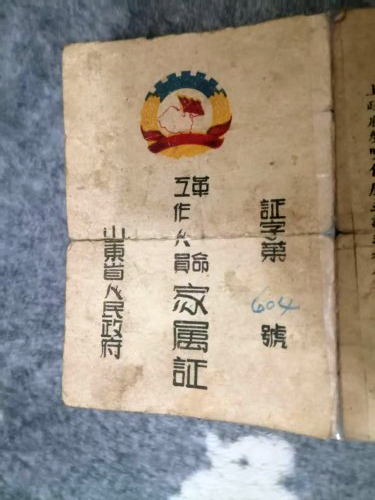 証字第 604 號
革命
工作人員
家属証
山東省人民政府